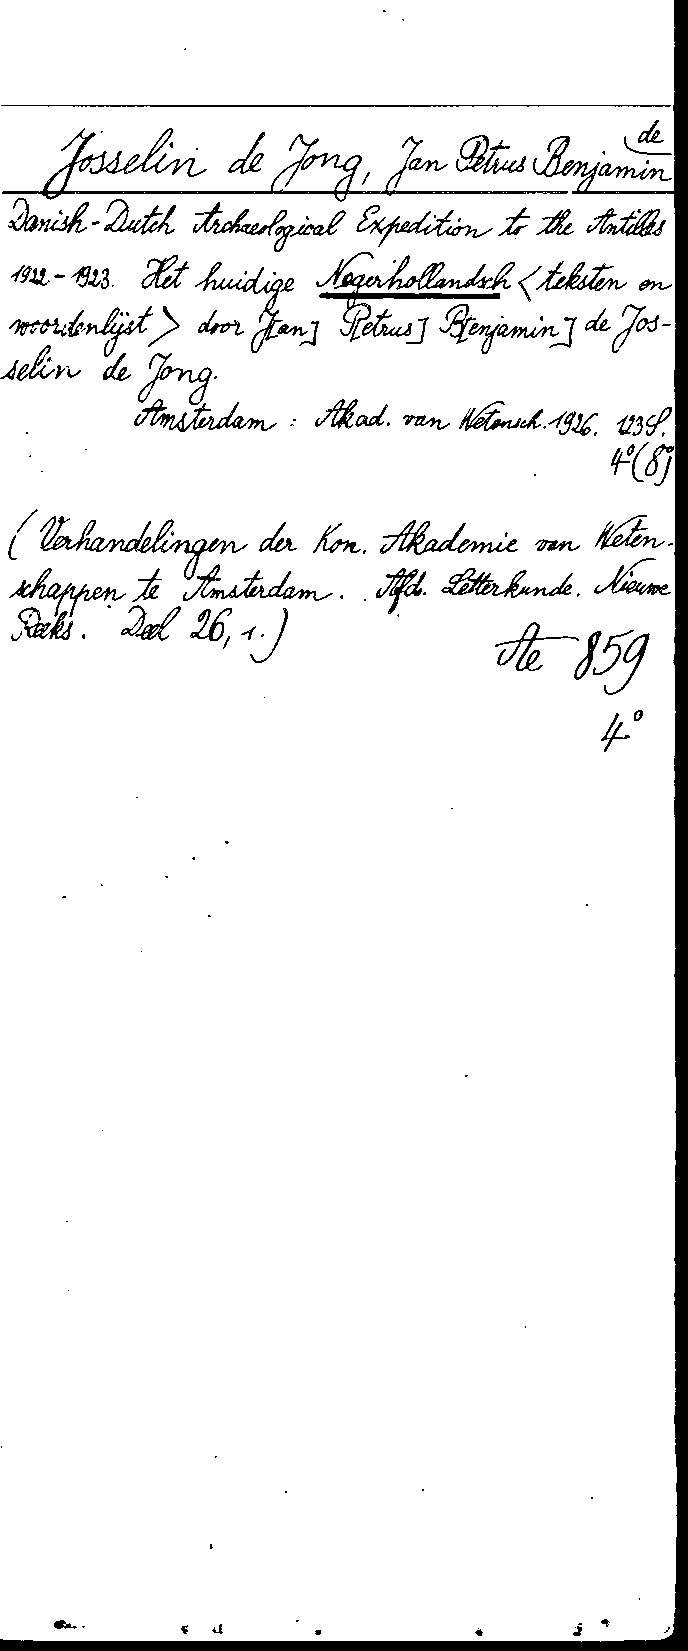 de
Josselin de Jong, Jan Petrus Benjamin
Danish-Dutch Archaeological Expedition to the Antilles
1922-1923. Het huidige Negerhollandsch <teksten en
woordenlijst> door J[an] P[etrus] B[enjamin] de Jos-
selin de Jong.
Amsterdam: Akad. van Wetensch. 1926. 123 S.
4°(8°)
(Verhandelingen der Kon. Akademie van Weten-
schappen te Amsterdam. Afd. Letterkunde. Nieuwe
Reeks. Deel 26,1.)
Ae 859
4°